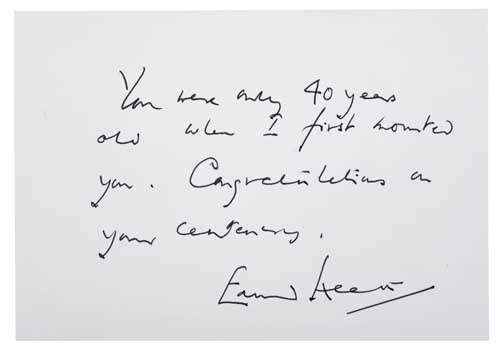 You were only 40 years
old when I first mounted
you. Congratulations on
your centenary.
Edward Heath